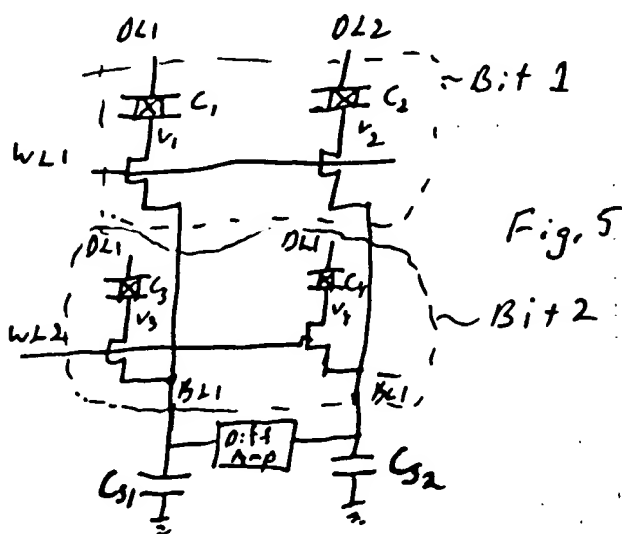 DL1 DL2
Bit 1
C1 C2
V1 V2
WL1
Fig. 5
DL1 DL1
C3 C4
V3 V4
WL2
Bit 2
BL1 BL1
Diff
Amp
CS1 CS2